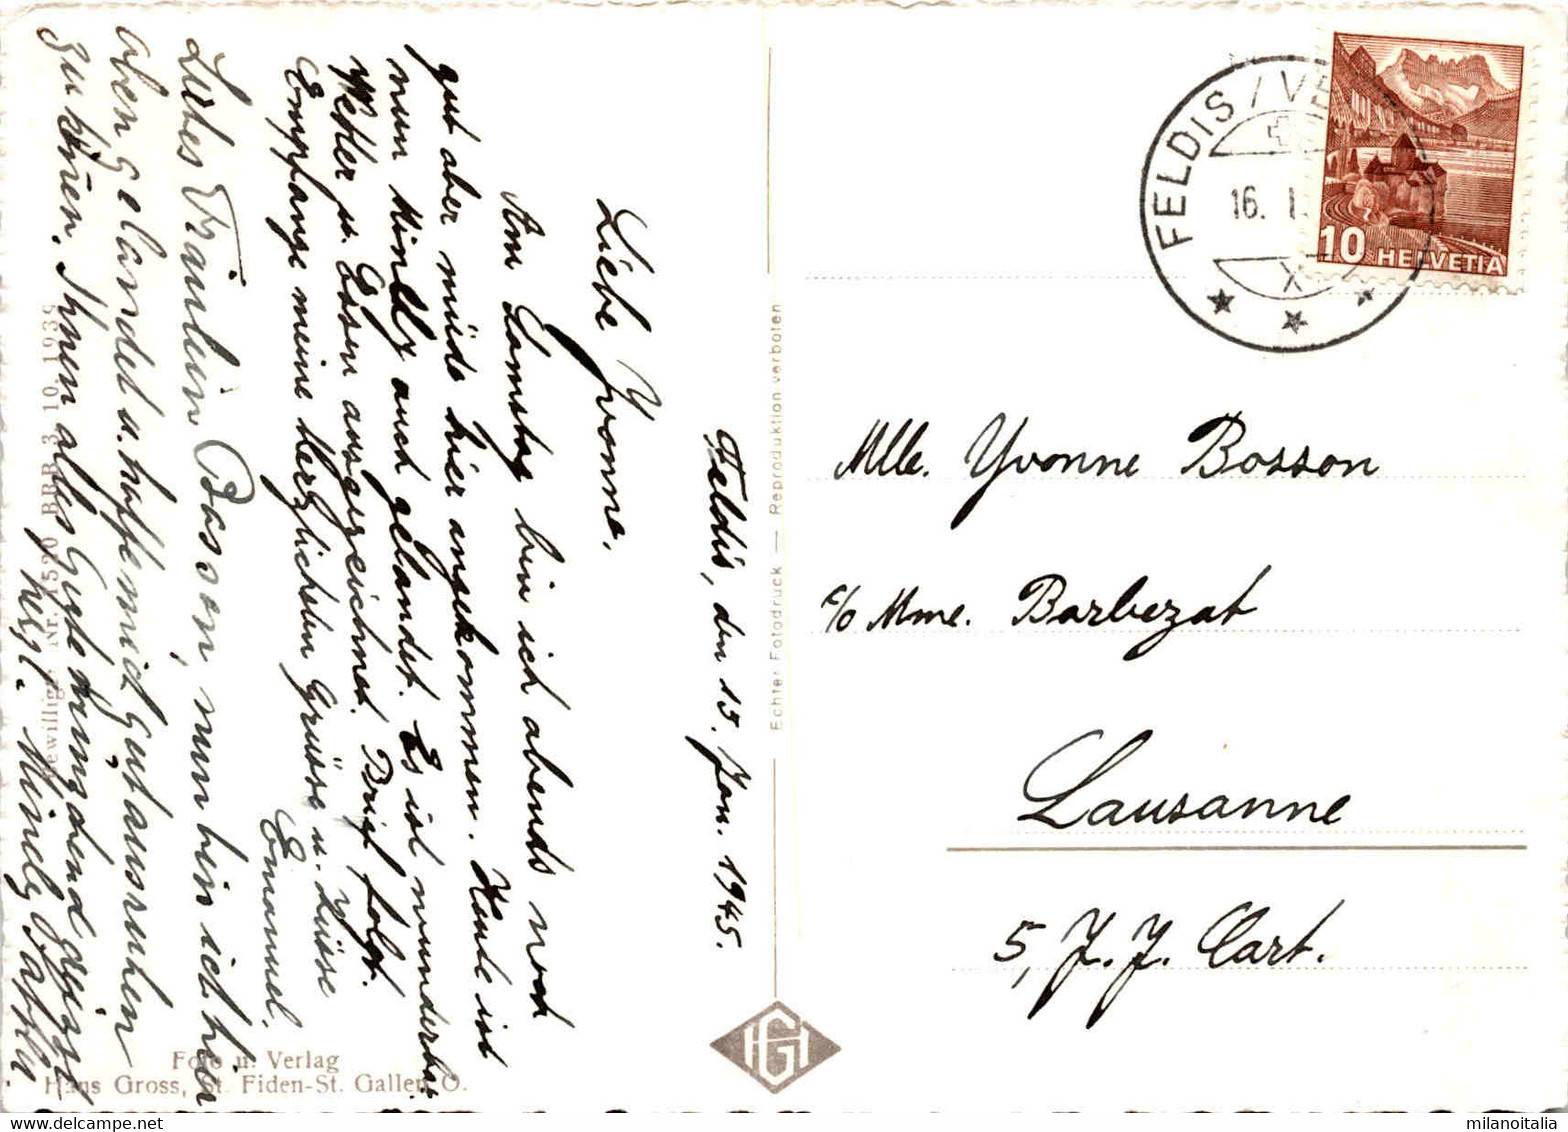 Feldis, den 15. Jan. 1945.
Liebe Yvonne,
Am Samstag bin ich abends noch
gut aber müde hier angekommen. Heute ist
nun Mindly auch gelandet. Es ist wunderbar
Wetter u. Essen ausgezeichnet. Brief folgt.
Empfange meine herzlichsten Grüsse u. Küsse
Emanuel.
Liebes Fräulein Bosson, nun bin ich hier
oben gelandet u. hoffe mich gut ausruhen
zu könen. Ihnen alles Gute
herzl. Mindy
Bewillig. Nr. 1520 BRB 3. 10. 1939
Foto u. Verlag
Hans Gross, St. Fiden-St. Gallen O.
Echter Fotodruck — Reproduktion verboten
HG
FELDIS / VE
16. I.
X
10 HELVETIA
Mlle. Yvonne Bosson
c/o Mme. Barbezat
Lausanne
5, J. J. Cart.
milanoitalia